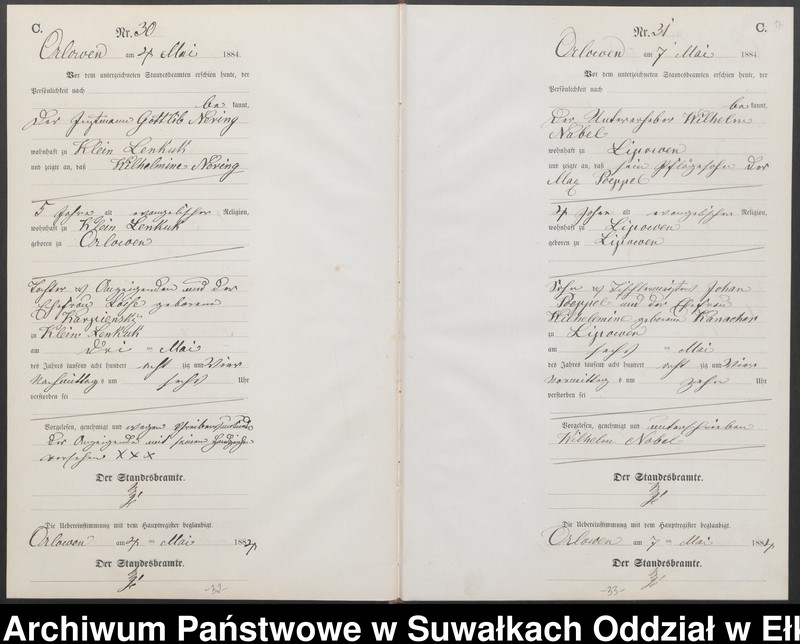 C.
Nr. 30
Orlowen am 4 Mai 1884
Vor dem unterzeichneten Standesbeamten erschien heute, der
Persönlichkeit nach
be kannt,
der Instmann Gottlib Nering
wohnhaft zu Klein Lenkuk
und zeigte an, daß Wilhelmine Nering
5 Jahre alt evangelischer Religion,
wohnhaft zu Klein Lenkuk
geboren zu Orlowen
Tochter des Anzeigenden und der
Ehefrau geborene
Karpienski
zu Klein Lenkuk
am drei ten Mai
des Jahres tausend acht hundert acht zig und vier
Nachmittags um sechs Uhr
verstorben sei
Vorgelesen, genehmigt und wegen Schreibensunkunde
der Anzeigende mit seinem Handzeichen
versehen XXX
Der Standesbeamte.
Die Uebereinstimmung mit dem Hauptregister beglaubigt.
Orlowen am 4 ten Mai 1884
Der Standesbeamte.
-32-
C.
Nr. 31
Orlowen am 7 Mai 1884
Vor dem unterzeichneten Standesbeamten erschien heute, der
Persönlichkeit nach
be kannt,
der Untererheber Wilhelm
Nabel
wohnhaft zu Lipowen
und zeigte an, daß sein Pflegesohn der
Max Poeppel
4 Jahre alt evangelischer Religion,
wohnhaft zu Lipowen
geboren zu Lipowen
Sohn des Tischlermeisters Johan
Poeppel und der Ehefrau
Wilhelmine geborene Kanacher
zu Lipowen
am sechs ten Mai
des Jahres tausend acht hundert acht zig und vier
Vormittags um zehn Uhr
verstorben sei
Vorgelesen, genehmigt und unterschrieben
Wilhelm Nabel
Der Standesbeamte.
Die Uebereinstimmung mit dem Hauptregister beglaubigt.
Orlowen am 7 ten Mai 1884
Der Standesbeamte.
-33-
Archiwum Państwowe w Suwałkach Oddział w Eł